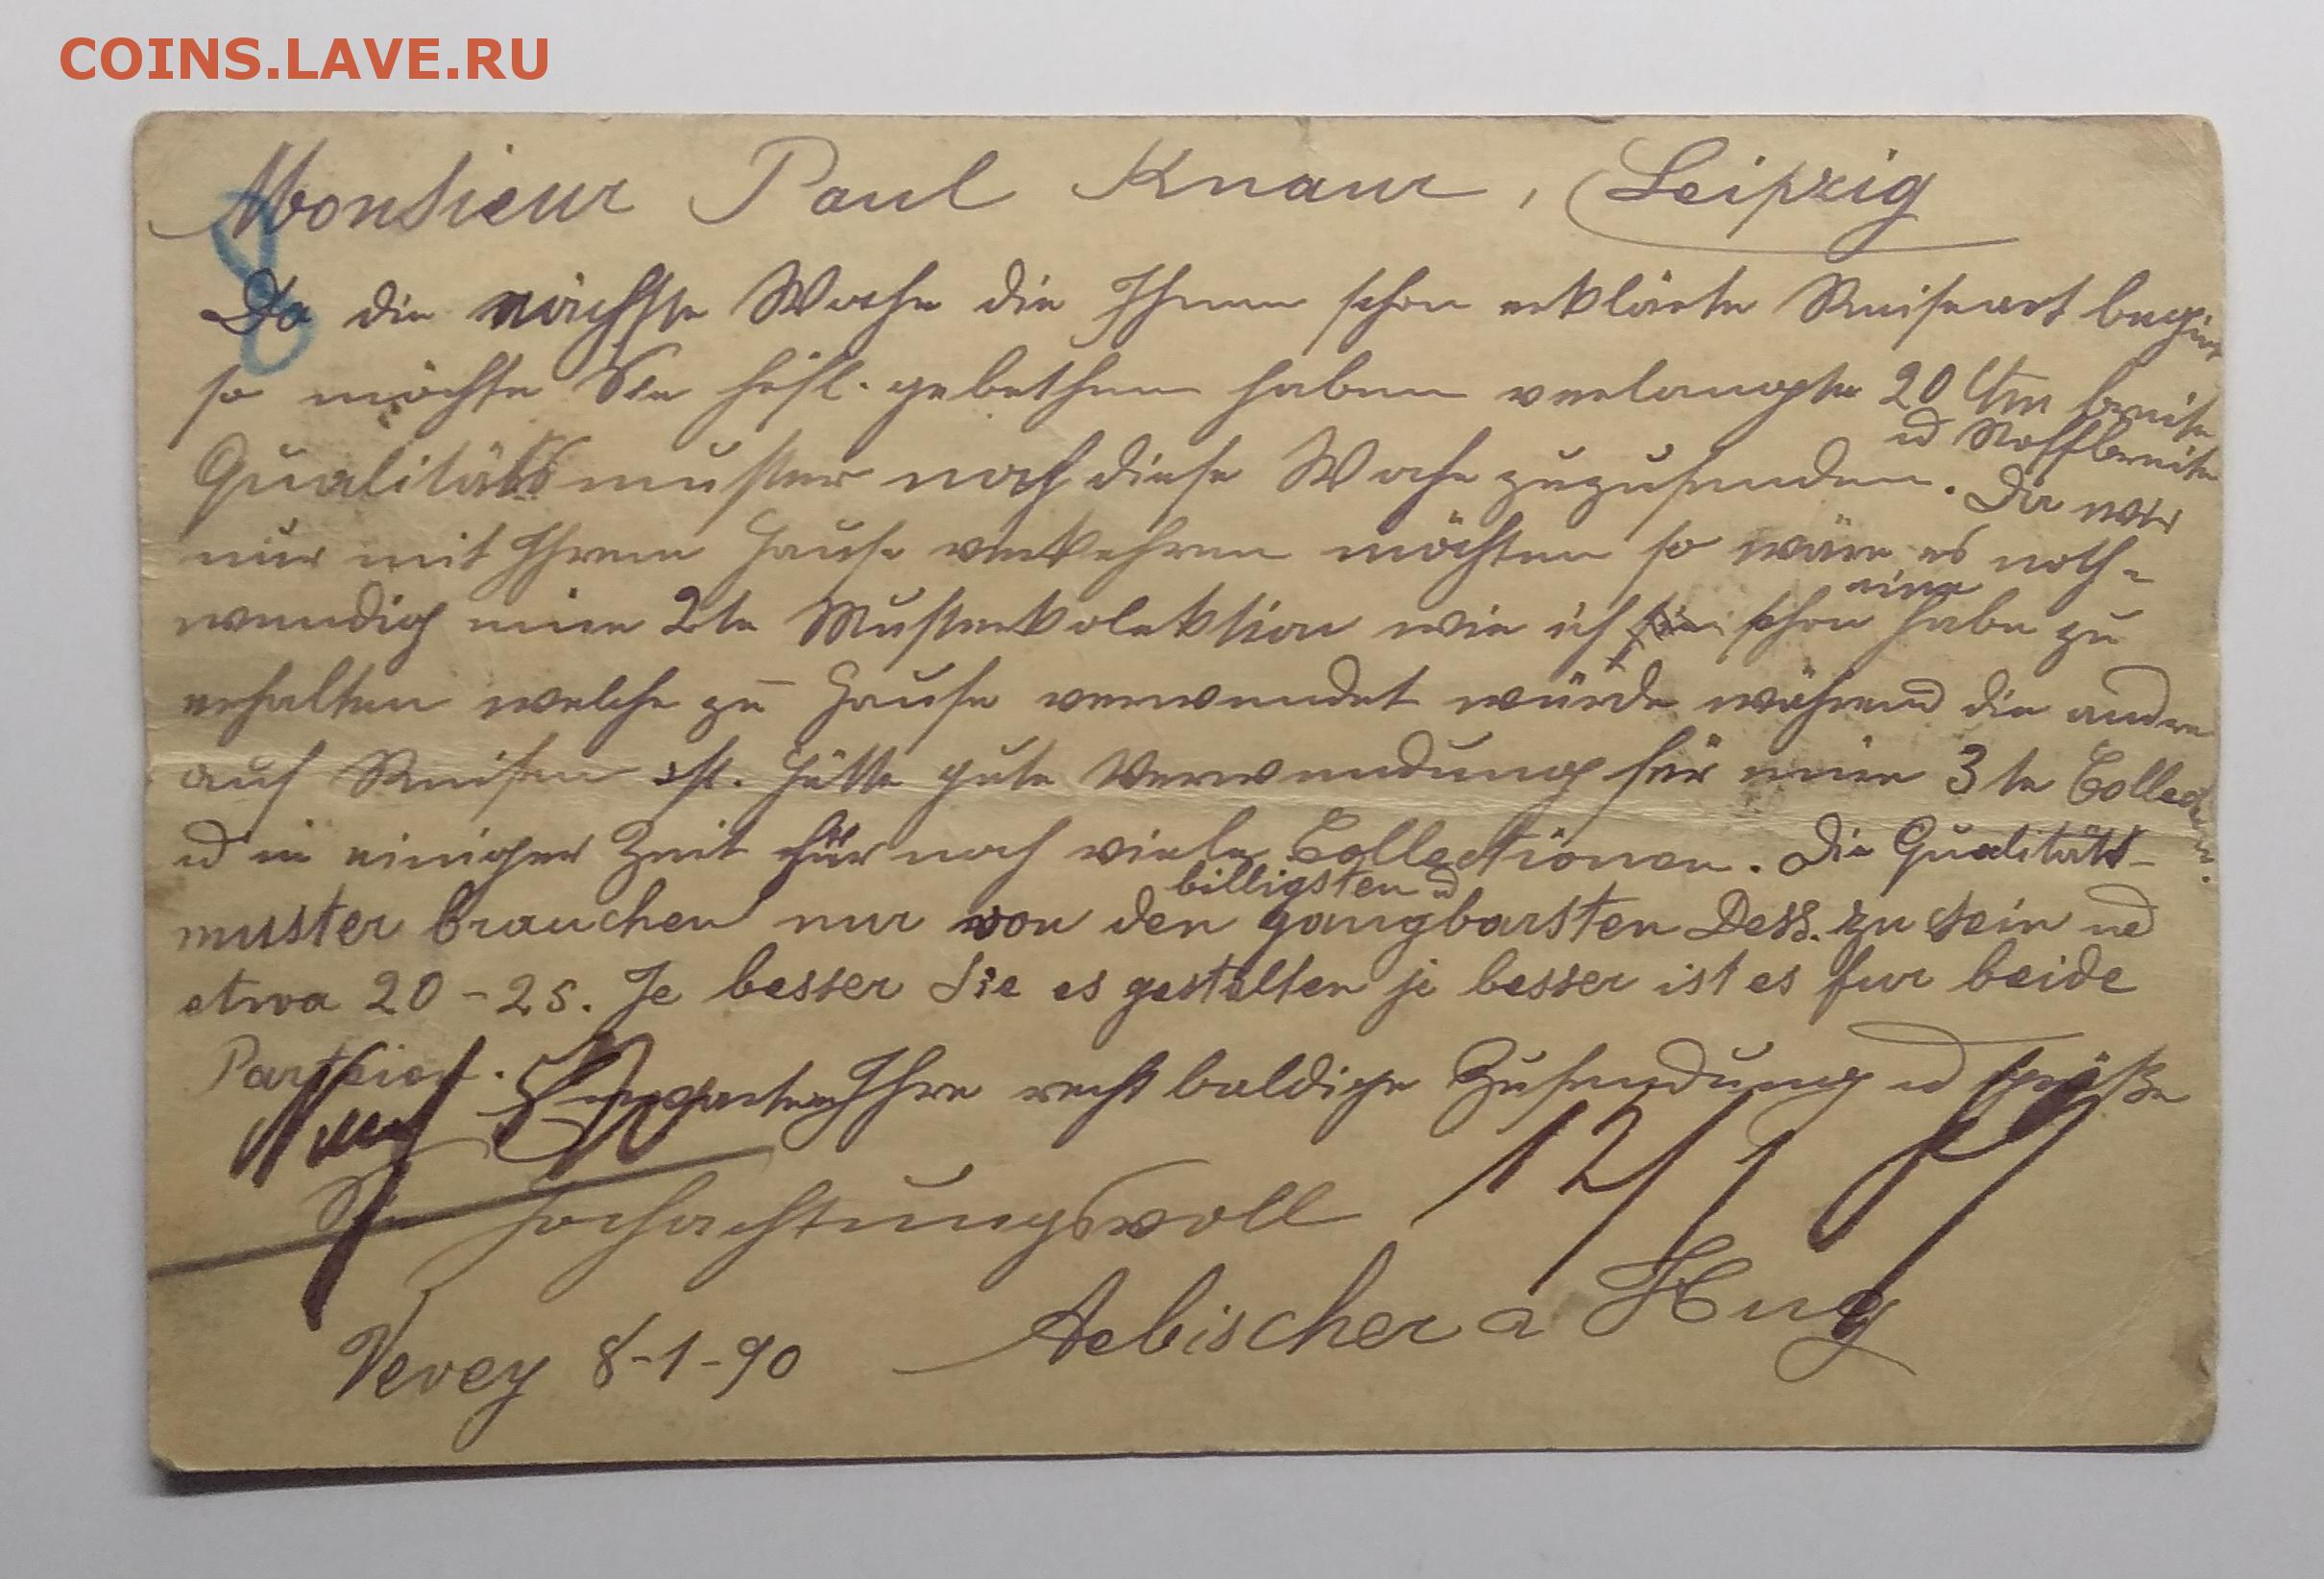 COINS.LAVE.RU
Monsieur Paul Knaur, Leipzig
Da die nächste Woche die Ihnen schon erklärte Reiseart begint
so möchte Sie höfl. gebethen haben verlangte 20 Ctm breite
ud Stoffbreite
Qualitätsmuster noch diese Woche zuzusenden. Da wir
nur mit Ihrem Hause verkehren möchten so wäre es noth-
wendig eine 2te Musterkolektion wie ich schon eine habe zu
erhalten welche zu Hause verwendet würde während die andere
auf Reisen ist. Hätte gute Verwendung für eine 3te Collection
ud in einiger Zeit für noch viele Collectionen. Die Qualitäts-
billigsten ud
muster brauchen nur von den gangbarsten Dess. zu sein ud
etwa 20-25. Je besser Sie es gestalten je besser ist es fur beide
Partheien. Ihre recht baldige Zusendung ud grüße
Sie hochachtungsvoll 12/1
Vevey 8-1-90 Aebischer a Hug